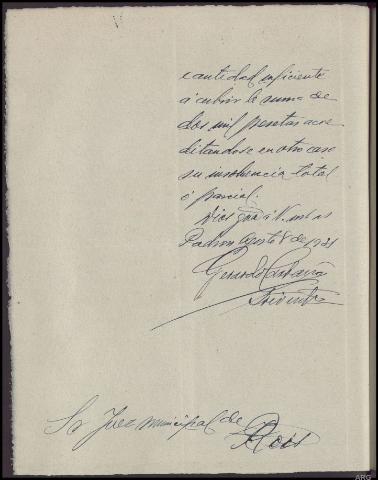 cantidad suficiente
á cubrir la suma de
dos mil pesetas acre
ditandose en otro caso
su insolvencia total
ó parcial.
Dios gue á V. m͏s as
Padron Agosto 8 de 1921
Gerardo
Sr Juez municipal de
Rois
ARG